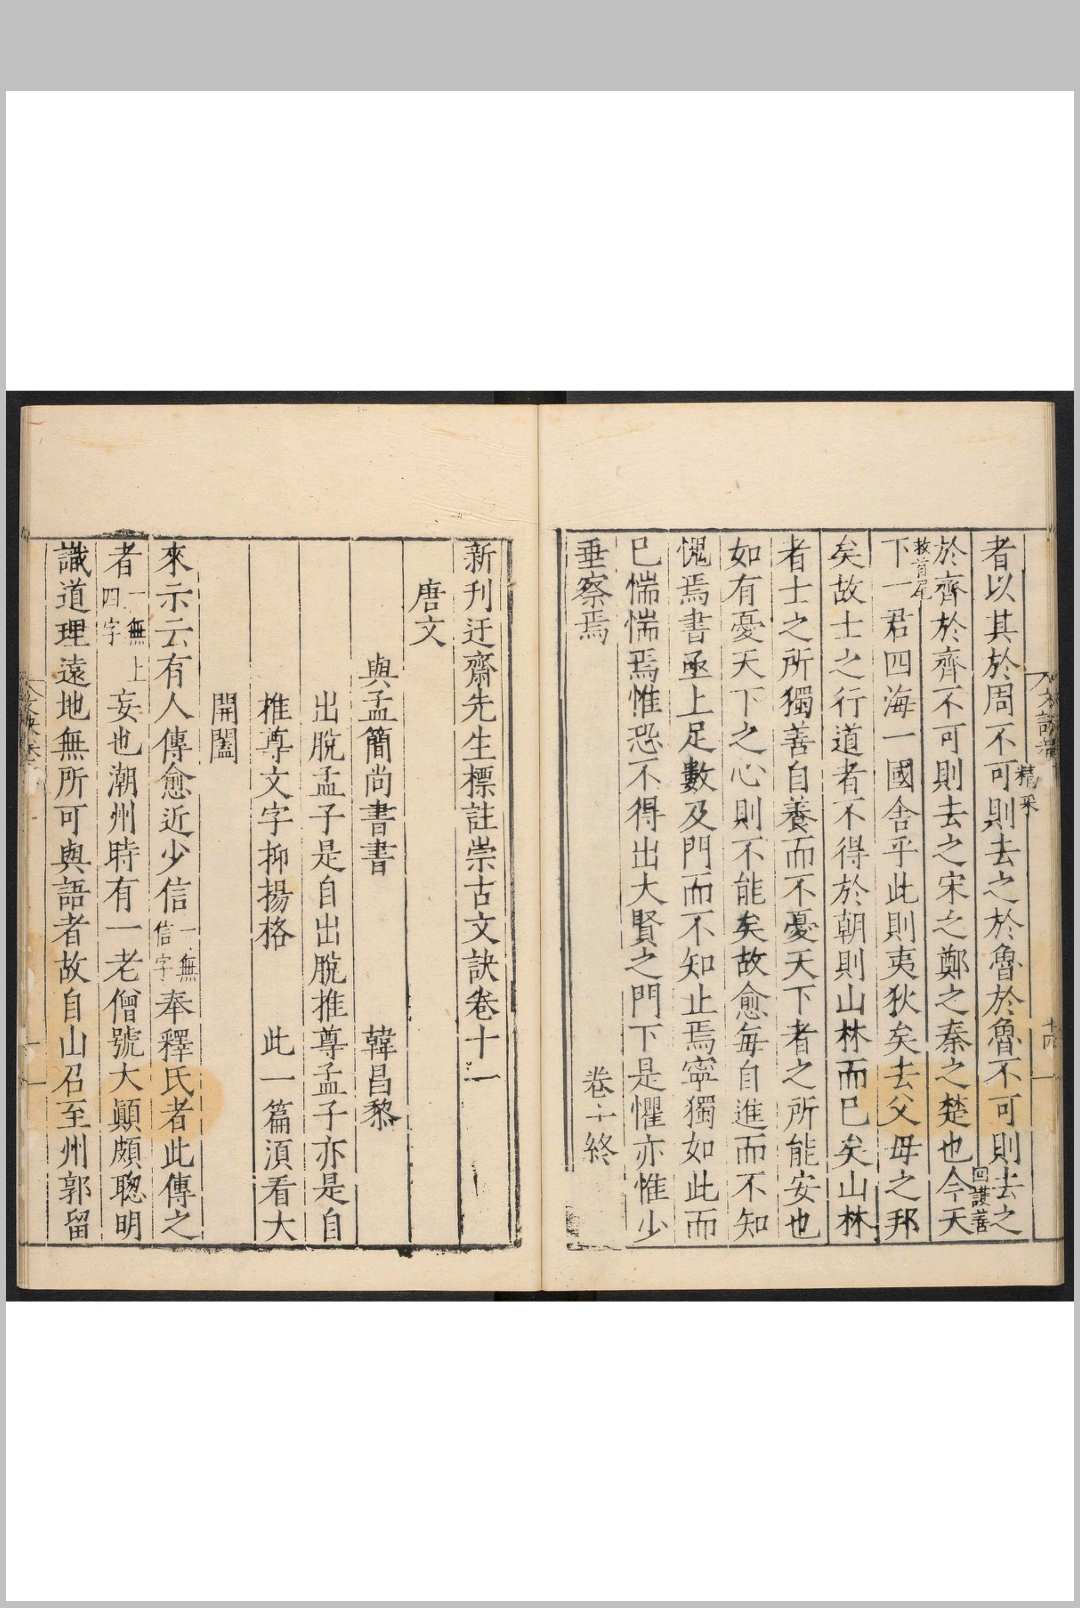 者以其於周不可則去之於魯於魯不可則去之
精采
於齊於齊不可則去之宋之鄭之秦之楚也今天
回護善
救首尾
下一君四海一國舍乎此則夷狄矣去父母之邦
矣故士之行道者不得於朝則山林而已矣山林
者士之所獨善自養而不憂天下者之所能安也
如有憂天下之心則不能矣故愈每自進而不知
愧焉書亟上足數及門而不知止焉寧獨如此而
已惴惴焉惟恐不得出大賢之門下是懼亦惟少
垂察焉 卷十終
新刊迂齋先生標註崇古文訣卷十一
唐文
與孟簡尚書書 韓昌黎
出脫孟子是自出脫推尊孟子亦是自
推尊文字抑揚格 此一篇須看大
開闔
來示云有人傳愈近少信一無信字奉釋氏者此傳之
者一無上四字妄也潮州時有一老僧號大顛頗聰明
識道理遠地無所可與語者故自山召至州郭留